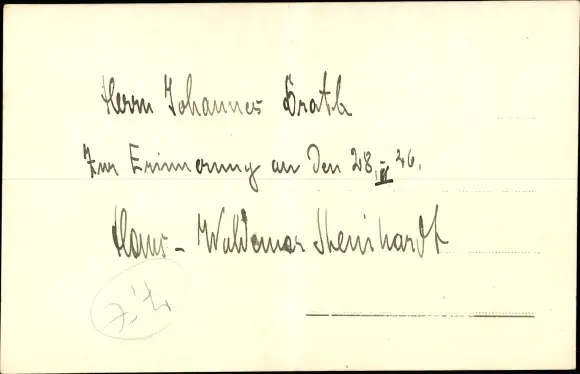 Herrn Johannes Brath
Zur Erinnerung an den 28. II 26.
Hans-Waldemar Steinhardt